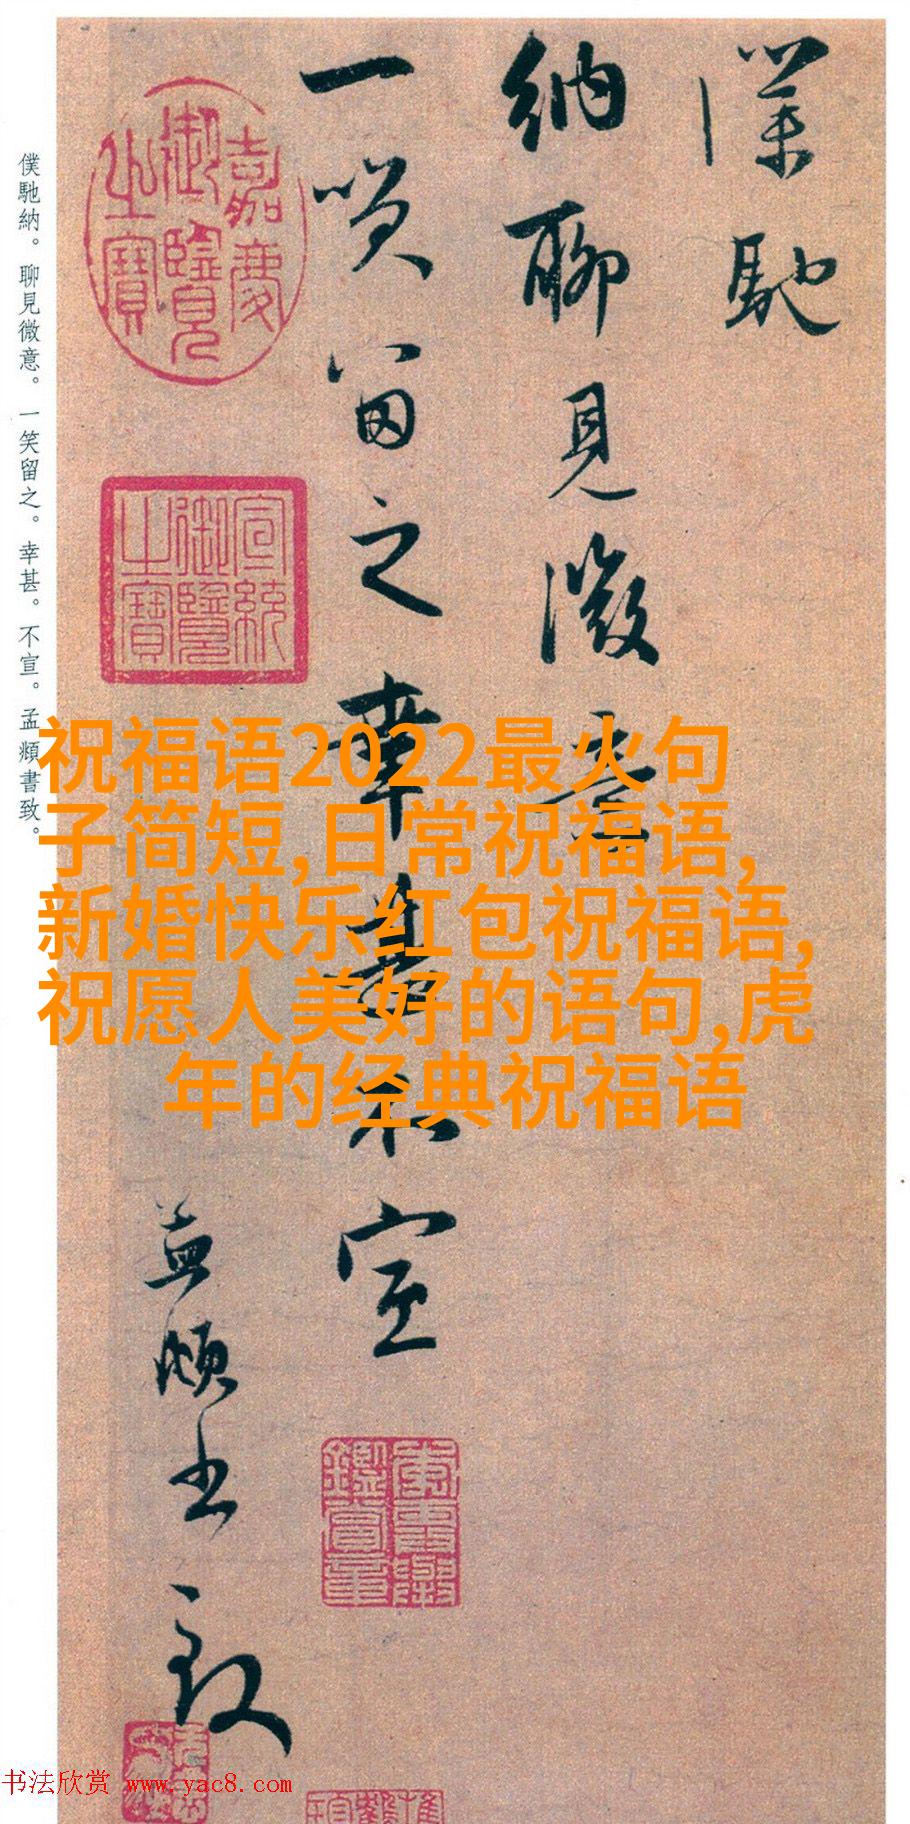 僕馳
納聊見微意
一笑留之幸甚不宣
孟頫書致
嘉慶御覽之寶
宣統御覽之寶
僕馳納。聊見微意。一笑留之。幸甚。不宣。孟頫書致。
祝福语2022最火句
子简短,日常祝福语,
新婚快乐红包祝福语,
祝愿人美好的语句,虎
年的经典祝福语
书法欣赏 www.yac8.com